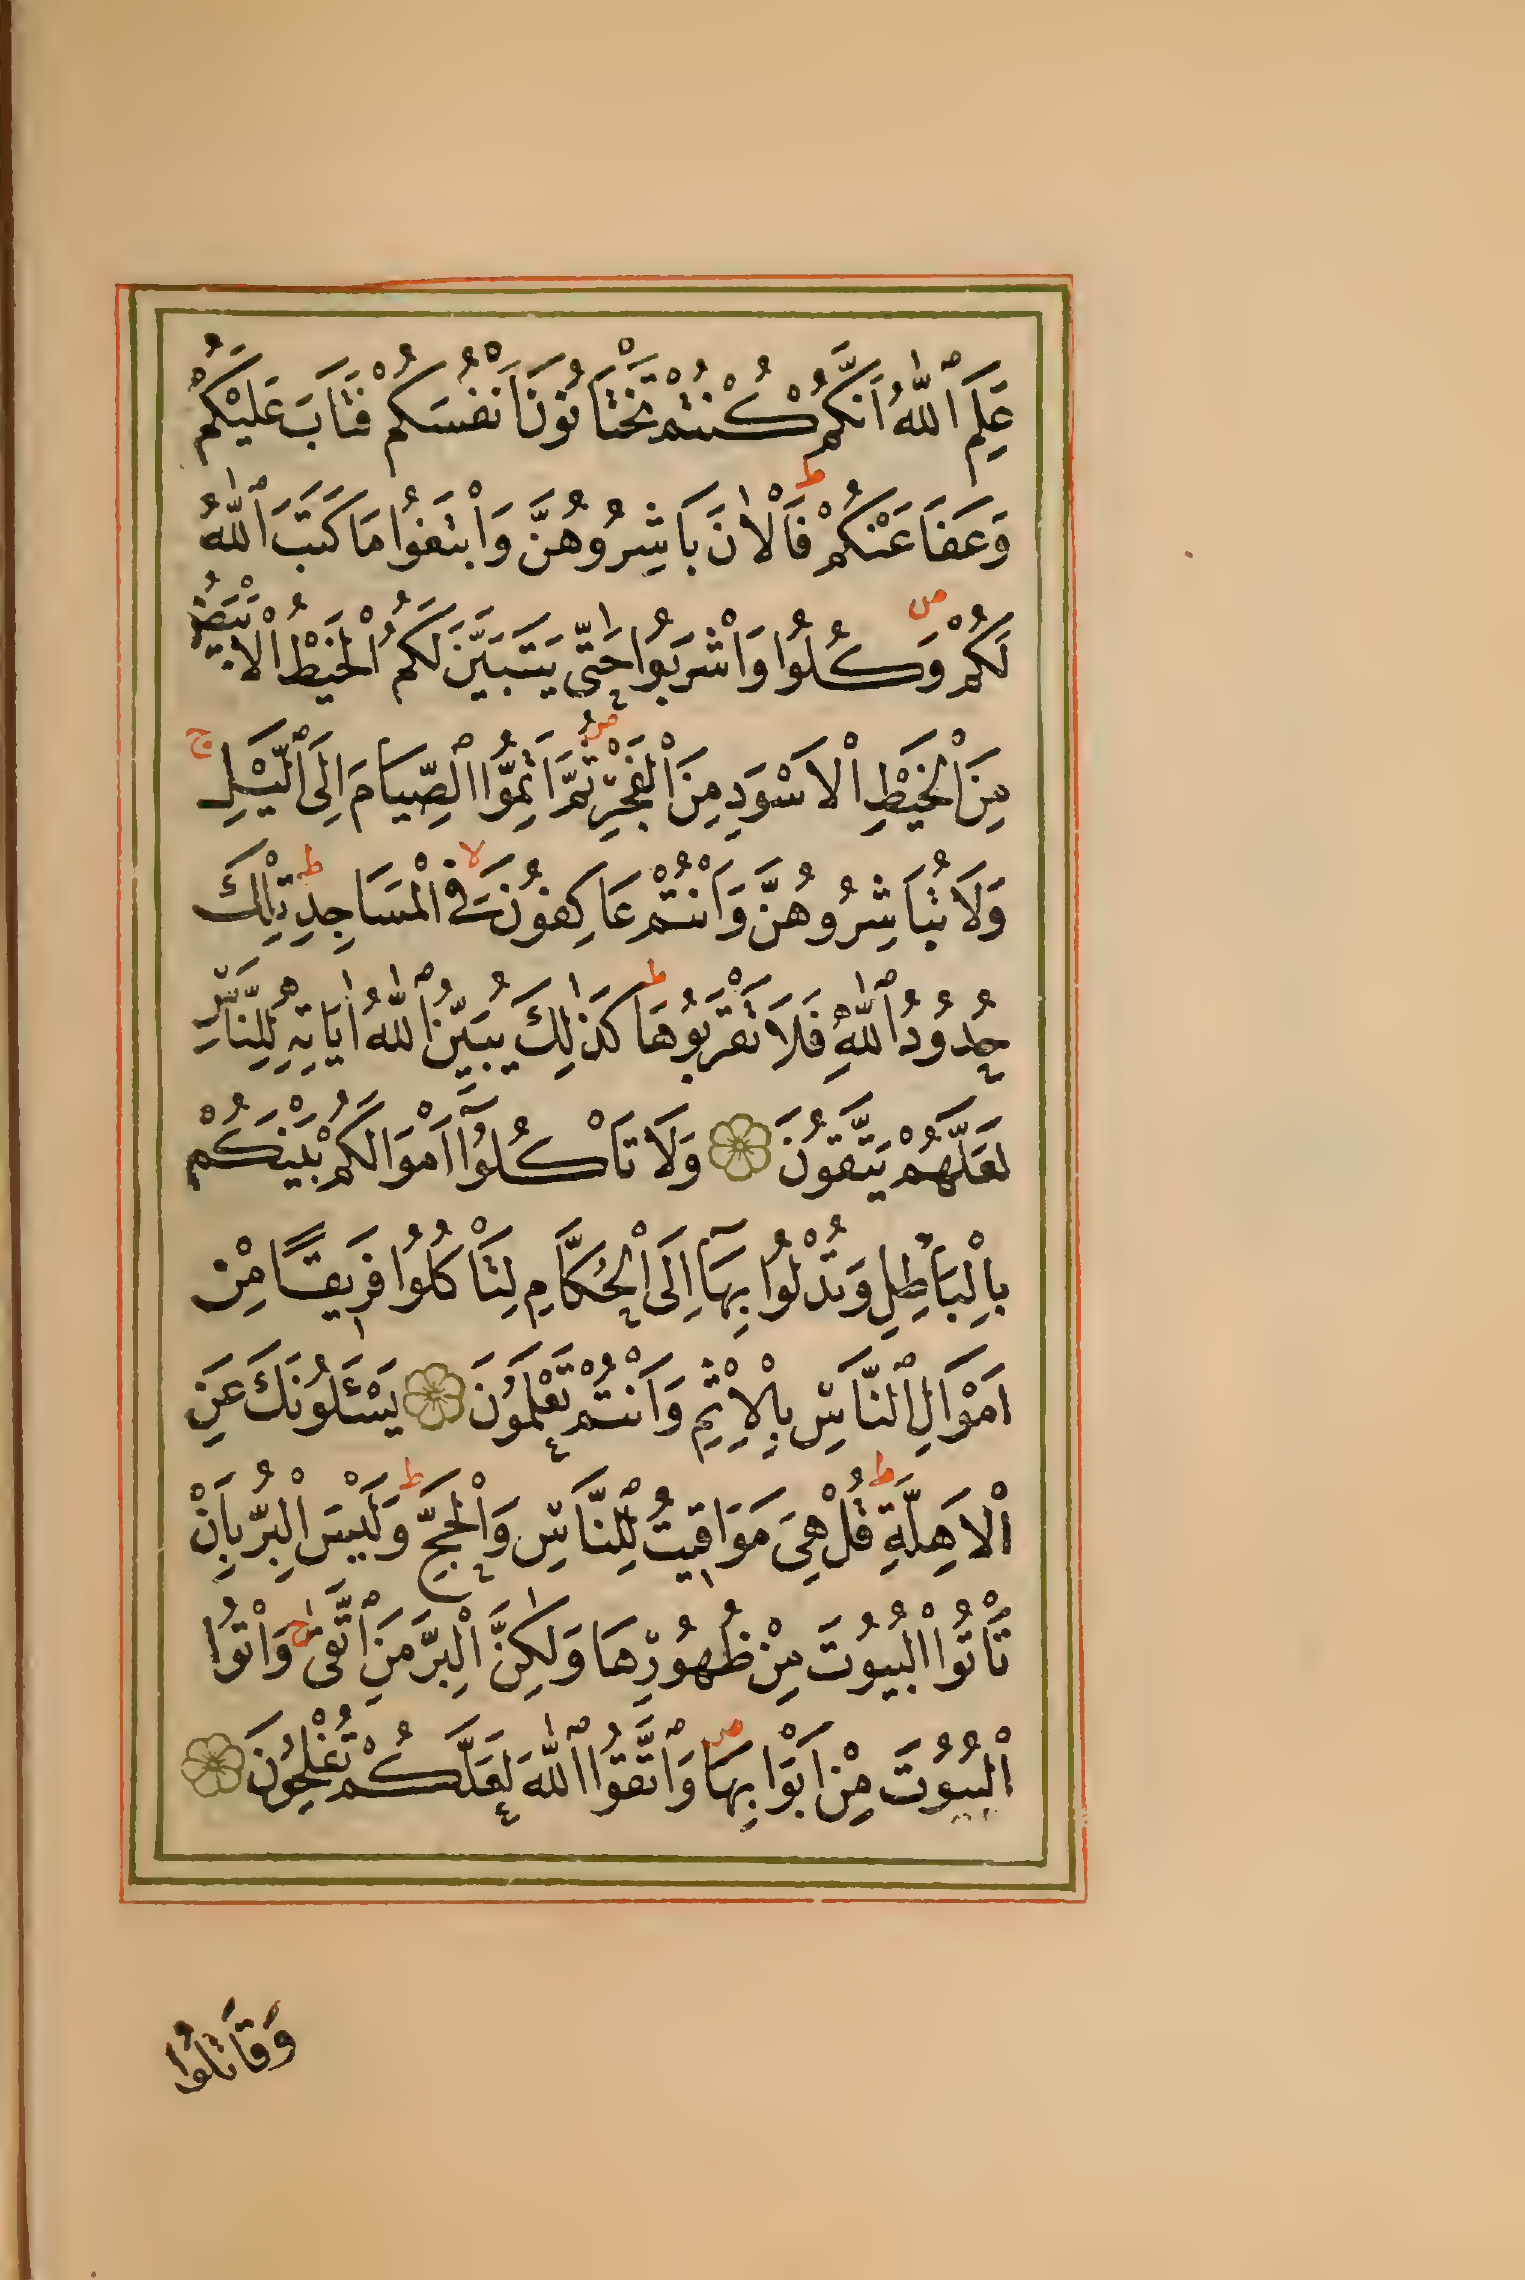 عَلِمَ ٱللّٰهُ اَنَّكُمْ كُنْتُمْ تَخْتَانُونَ اَنْفُسَكُمْ فَتَابَ عَلَيْكُمْ
وَعَفَا عَنْكُمْ ط فَالْاٰنَ بَاشِرُوهُنَّ وَابْتَغُوا مَا كَتَبَ ٱللّٰهُ
لَكُمْ ص وَكُلُوا وَاشْرَبُوا حَتّٰى يَتَبَيَّنَ لَكُمُ الْخَيْطُ الْاَبْيَضُ
مِنَ الْخَيْطِ الْاَسْوَدِ مِنَ الْفَجْرِ ص ثُمَّ اَتِمُّوا ٱلصِّيَامَ اِلَى ٱلَّيْلِ ج
وَلَا تُبَاشِرُوهُنَّ وَاَنْتُمْ عَاكِفُونَ لا فِي الْمَسَاجِدِ ط تِلْكَ
حُدُودُ ٱللّٰهِ فَلَا تَقْرَبُوهَا ط كَذٰلِكَ يُبَيِّنُ ٱللّٰهُ اٰيَاتِهِ لِلنَّاسِ
لَعَلَّهُمْ يَتَّقُونَ وَلَا تَاْكُلُوٓا اَمْوَالَكُمْ بَيْنَكُمْ
بِالْبَاطِلِ وَتُدْلُوا بِهَآ اِلَى الْحُكَّامِ لِتَاْكُلُوا فَرِيقًا مِنْ
اَمْوَالِ ٱلنَّاسِ بِالْاِثْمِ وَاَنْتُمْ تَعْلَمُونَ يَسْـَٔلُونَكَ عَنِ
الْاَهِلَّةِ ط قُلْ هِيَ مَوَاقِيتُ لِلنَّاسِ وَالْحَجِّ ط وَلَيْسَ الْبِرُّ بِاَنْ
تَاْتُوا الْبُيُوتَ مِنْ ظُهُورِهَا وَلٰكِنَّ الْبِرَّ مَنِ ٱتَّقٰى ج وَاْتُوا
الْبُيُوتَ مِنْ اَبْوَابِهَا ص وَٱتَّقُوا ٱللّٰهَ لَعَلَّكُمْ تُفْلِحُونَ
وَقَاتِلُوا